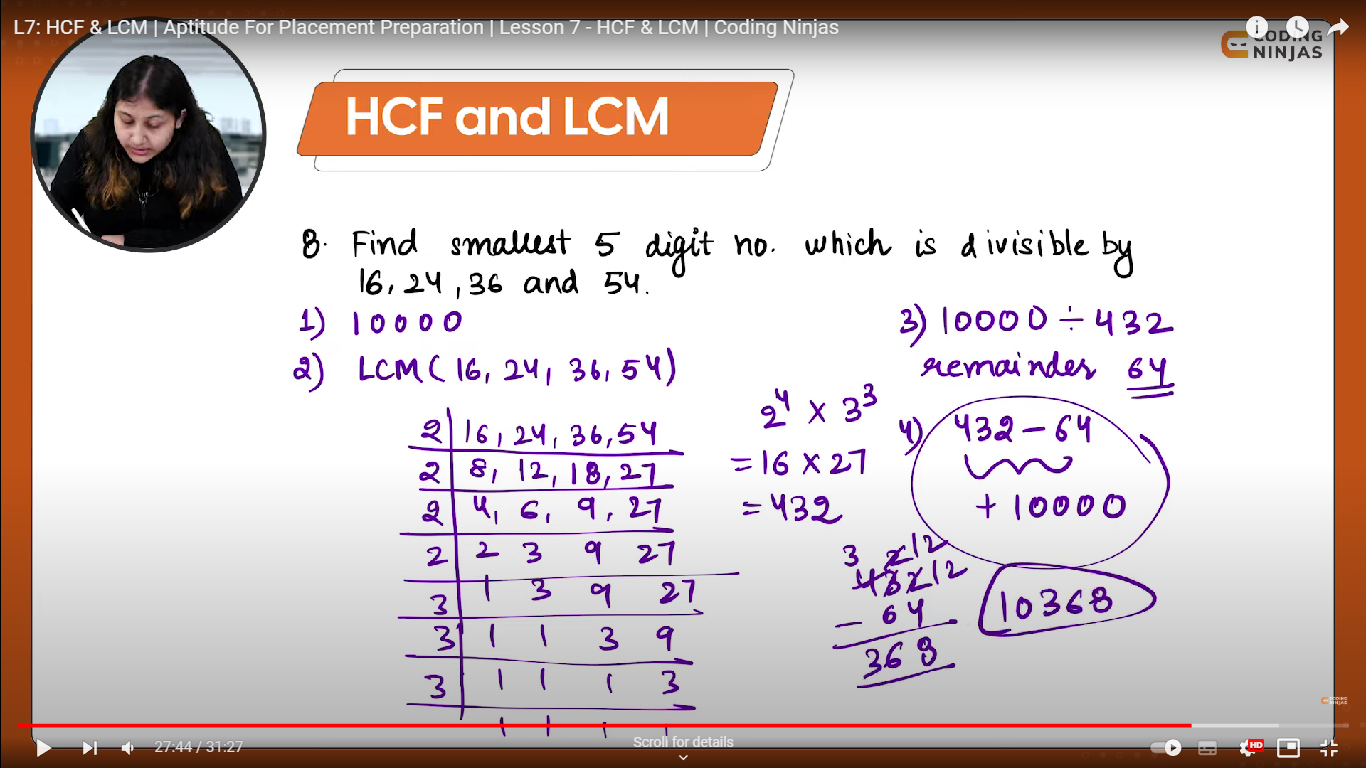 L7: HCF & LCM | Aptitude For Placement Preparation | Lesson 7 - HCF & LCM | Coding Ninjas
CODING
NINJAS
HCF and LCM
8. Find smallest 5 digit no. which is divisible by
16, 24, 36 and 54.
1) 10000
2) LCM (16, 24, 36, 54)
2 | 16, 24, 36, 54
2 | 8, 12, 18, 27
2 | 4, 6, 9, 27
2 | 2 3 9 27
3 | 1 3 9 27
3 | 1 1 3 9
3 | 1 1 1 3
1 1 1 1
2⁴ × 3³
= 16 × 27
= 432
3) 10000 ÷ 432
remainder 64
4) 432 - 64
+ 10000
3 2 12
4 3 2 12
- 64
368
10368
CODING
NINJAS
27:44 / 31:27
Scroll for details
HD